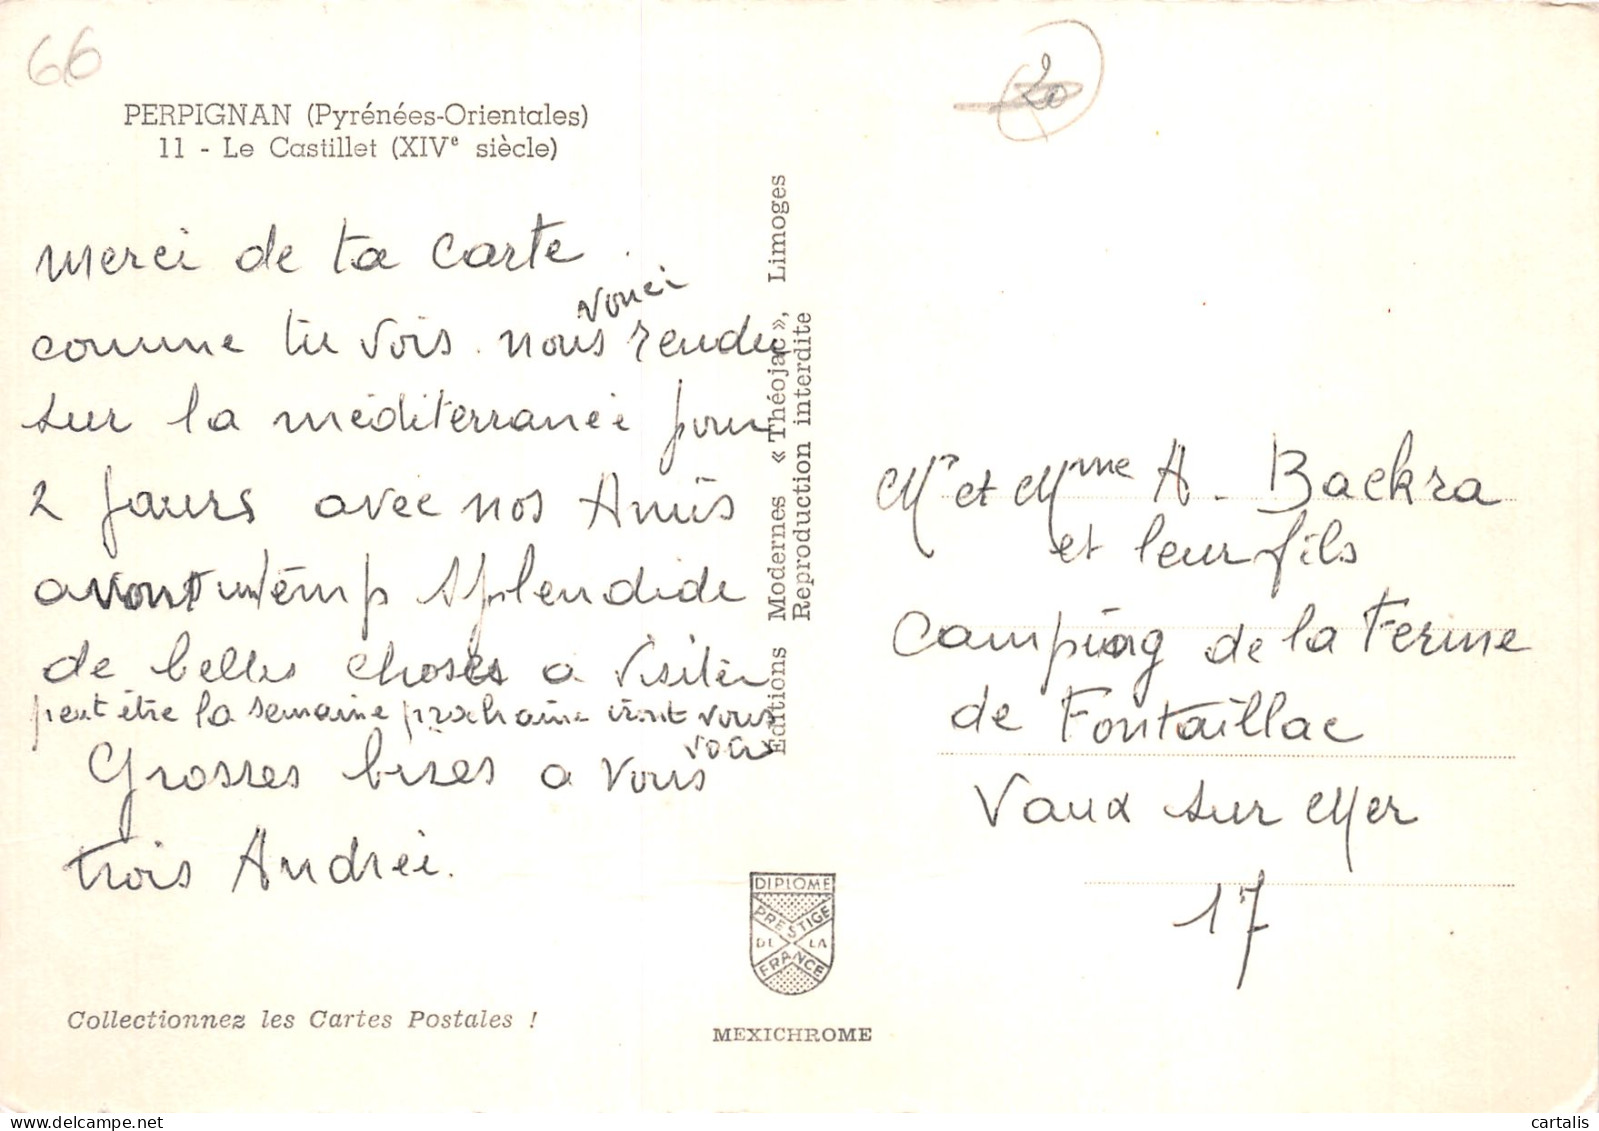 66
20
PERPIGNAN (Pyrénées-Orientales)
11 - Le Castillet (XIVe siècle)
merci de ta carte
comme tu vois nous voici rendu
sur la méditerranéé pour
2 jours avec nos Amis
avont un temp splendide
de belles choses a visiter
peut être la semaine prochaine iront vous
voir
Grosses bises a vous
trois Andréé.
Collectionnez les Cartes Postales !
Editions Modernes « Théojac », Limoges
Reproduction interdite
DIPLOME
PRESTIGE
DE LA
FRANCE
MEXICHROME
Mr et Mme A. Backra
et leur fils
Camping de la Ferme
de Fontaillac
Vaux sur Mer
17
cartalis